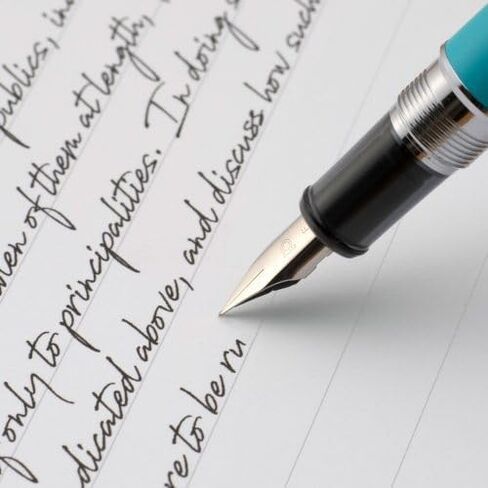 publics, in
ken of them at length,
f only to principalities. In doing s
dicated above, and discuss how such
re to be ru